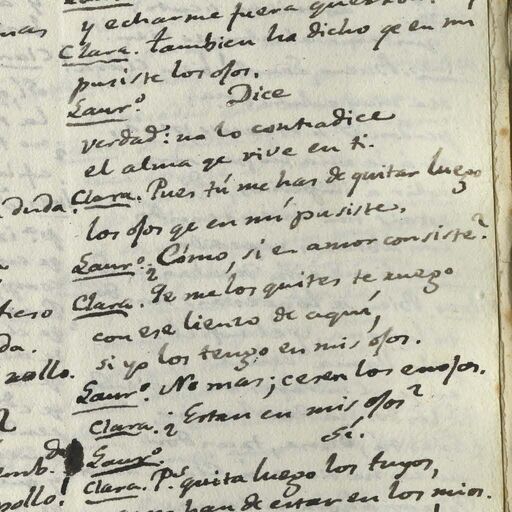 y echarme fuera
Clara. tambien ha dicho qe en mi
pusiste los ojos.
Laur.º Dice
verdad: no lo contradice
el alma qe vive en ti.
duda. Clara. Pues tú me has de quitar luego
los ojos qe en mí pusiste.
Laur.º ¿Cómo, si en amor consiste?
Clara. Qe me los quites te ruego
con ese lienzo de aquí,
si yo los tengo en mis ojos.
Laur.º No mas; cesen los enojos.
Clara. ¿Estan en mis ojos?
Laur.º Sí.
Clara. Ps quita luego los tuyos,
han de estar en los mios.